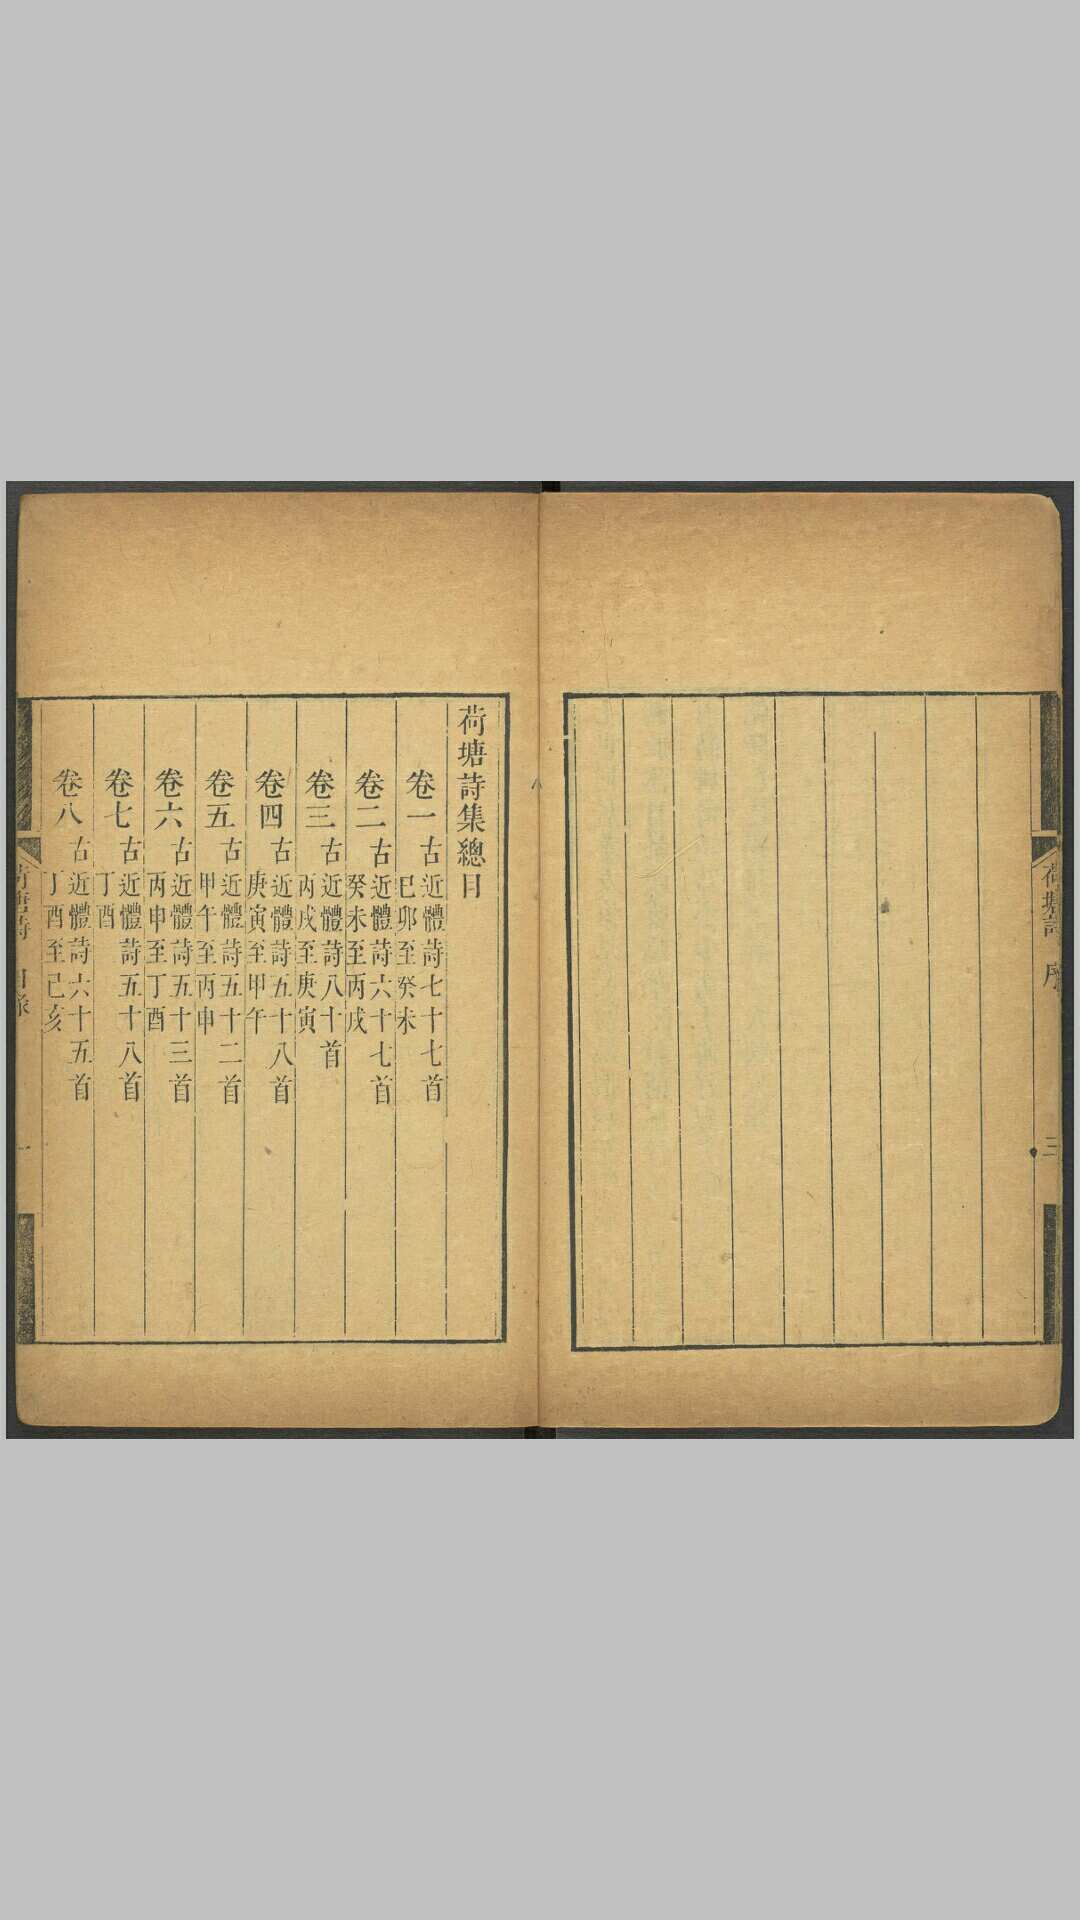 荷塘詩 序
三
荷塘詩集總目
卷一 古近體詩七十七首
己卯至癸未
卷二 古近體詩六十七首
癸未至丙戌
卷三 古近體詩八十首
丙戌至庚寅
卷四 古近體詩五十八首
庚寅至甲午
卷五 古近體詩五十二首
甲午至丙申
卷六 古近體詩五十三首
丙申至丁酉
卷七 古近體詩五十八首
丁酉
卷八 古近體詩六十五首
丁酉至己亥
荷塘詩 目錄
一